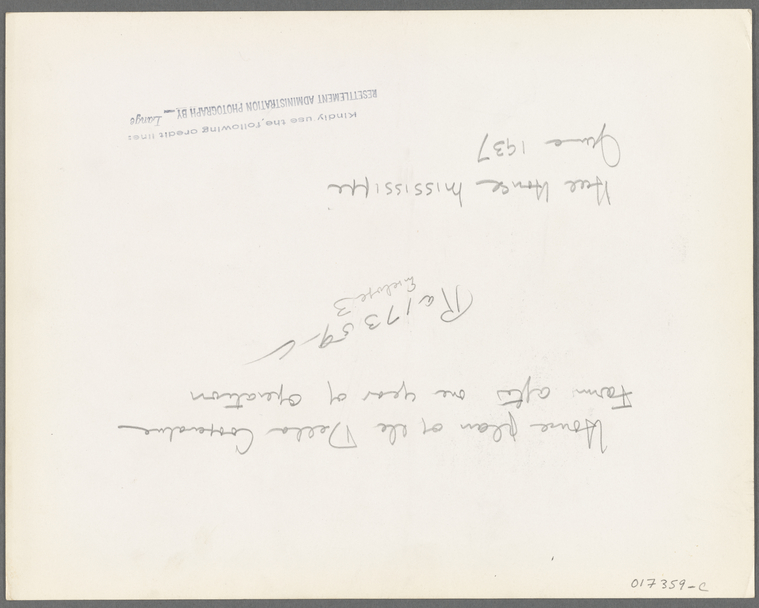 Home plan of the Delta Cooperative
Farm after one year of operation
Ra 17359-C
Enclose 3
Hill House Mississippi
June 1937
Kindly use the following credit line:
RESETTLEMENT ADMINISTRATION PHOTOGRAPH BY Lange
017359-C